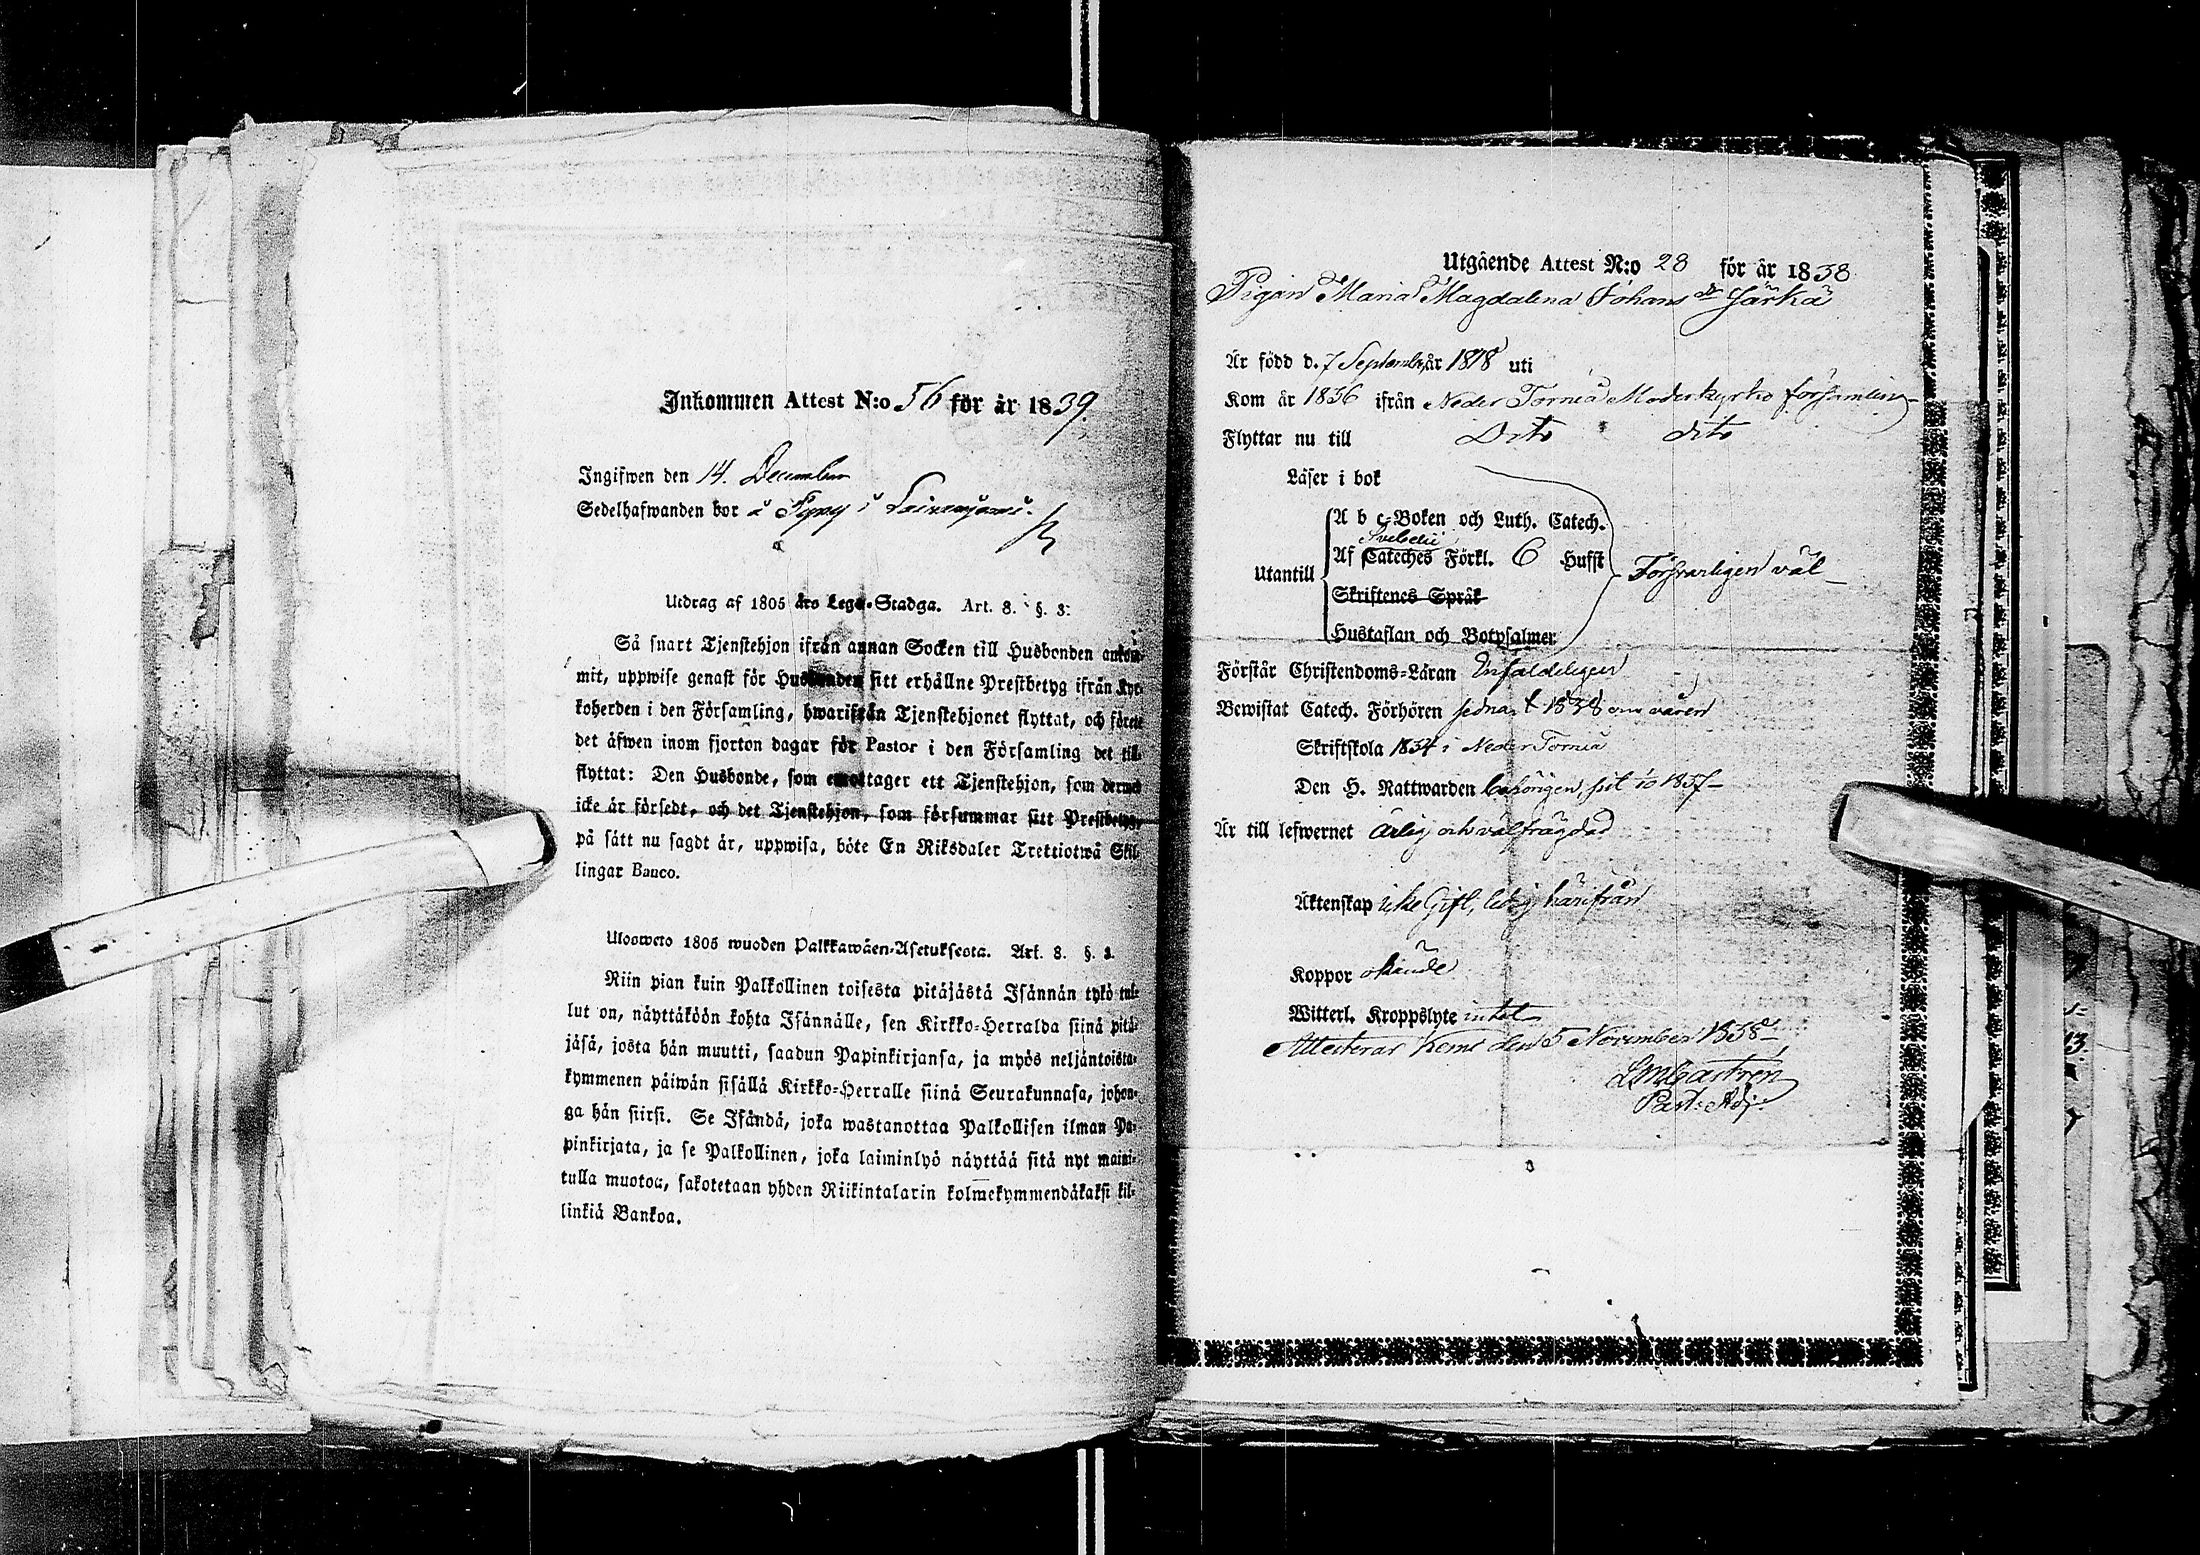 Inkommen Attest N:o 56 för år 1839.
Ingifwen den 14. December
Sedelhafwanden bor å i
Utdrag af 1805 års Lego-Stadga. Art. 8. §. 3.
Så snart Tjenstehjon ifrån annan Socken till Husbonden ankom-
mit, uppwise genast för Husbonden sitt erhållne Prestbetyg ifrån Kyr-
koherden i den Församling, hwarifrån Tjenstehjonet flyttat, och förete
det äfwen inom fjorton dagar för Pastor i den Församling det till-
flyttat: Den Husbonde, som emottager ett Tjenstehjon, som dermed
icke är försedt, och det Tjenstehjon, som försummar sitt Prestbetyg,
på sätt nu sagdt är, uppwisa, böte En Riksdaler Trettiotwå Skil-
lingar Banco.
Ulosweto 1805 wuoden Palkkawäen-Asetuksesta. Art. 8. §. 3.
Niin pian kuin Palkollinen toisesta pitäjästä Isännän tykö tul-
lut on, näyttäköön kohta Isännälle, sen Kirkko-Herralda siinä pitä-
jäsä, josta hän muutti, saadun Papinkirjansa, ja myös neljäntoista-
kymmenen päiwän sisällä Kirkko-Herralle siinä Seurakunnasa, johon-
ga hän siirsi. Se Isändä, joka wastanottaa Palkollisen ilman Pa-
pinkirjata, ja se Palkollinen, joka laiminlyö näyttää sitä nyt maini-
tulla muotoa, sakotetaan yhden Riikintalarin kolmekymmendäkaksi kil-
linkiä Bankoa.
Utgående Attest N:o 28 för år 1838
Pigan Maria Magdalena Johans dr Järkä
Är född d. 7 September år 1818 uti
Kom år 1836 ifrån Neder Torneå Moderkyrko församling
Flyttar nu till Dito dito
Läser i bok
A b c-Boken och Luth. Catech.
Svebelii
Utantill Af Cateches Förkl. 6 Hufst Försvarligen väl
Skriftenes Språk
Hustaflan och Botpsalmer
Förstår Christendoms-Läran Enfaldeligen
Bewistat Catech. Förhören sednast 1838 om våren
Skriftskola 1834 i Neder Torneå
Den H. Nattwarden behörigen, sist 1837
Är till lefwernet ärlig och välfrägdad
Äktenskap icke Gift, ledig härifrån
Koppor
Witterl. Kroppslyte intet
Attesterar Kemi den 5 November 1838
Castrén
Past: Adj: